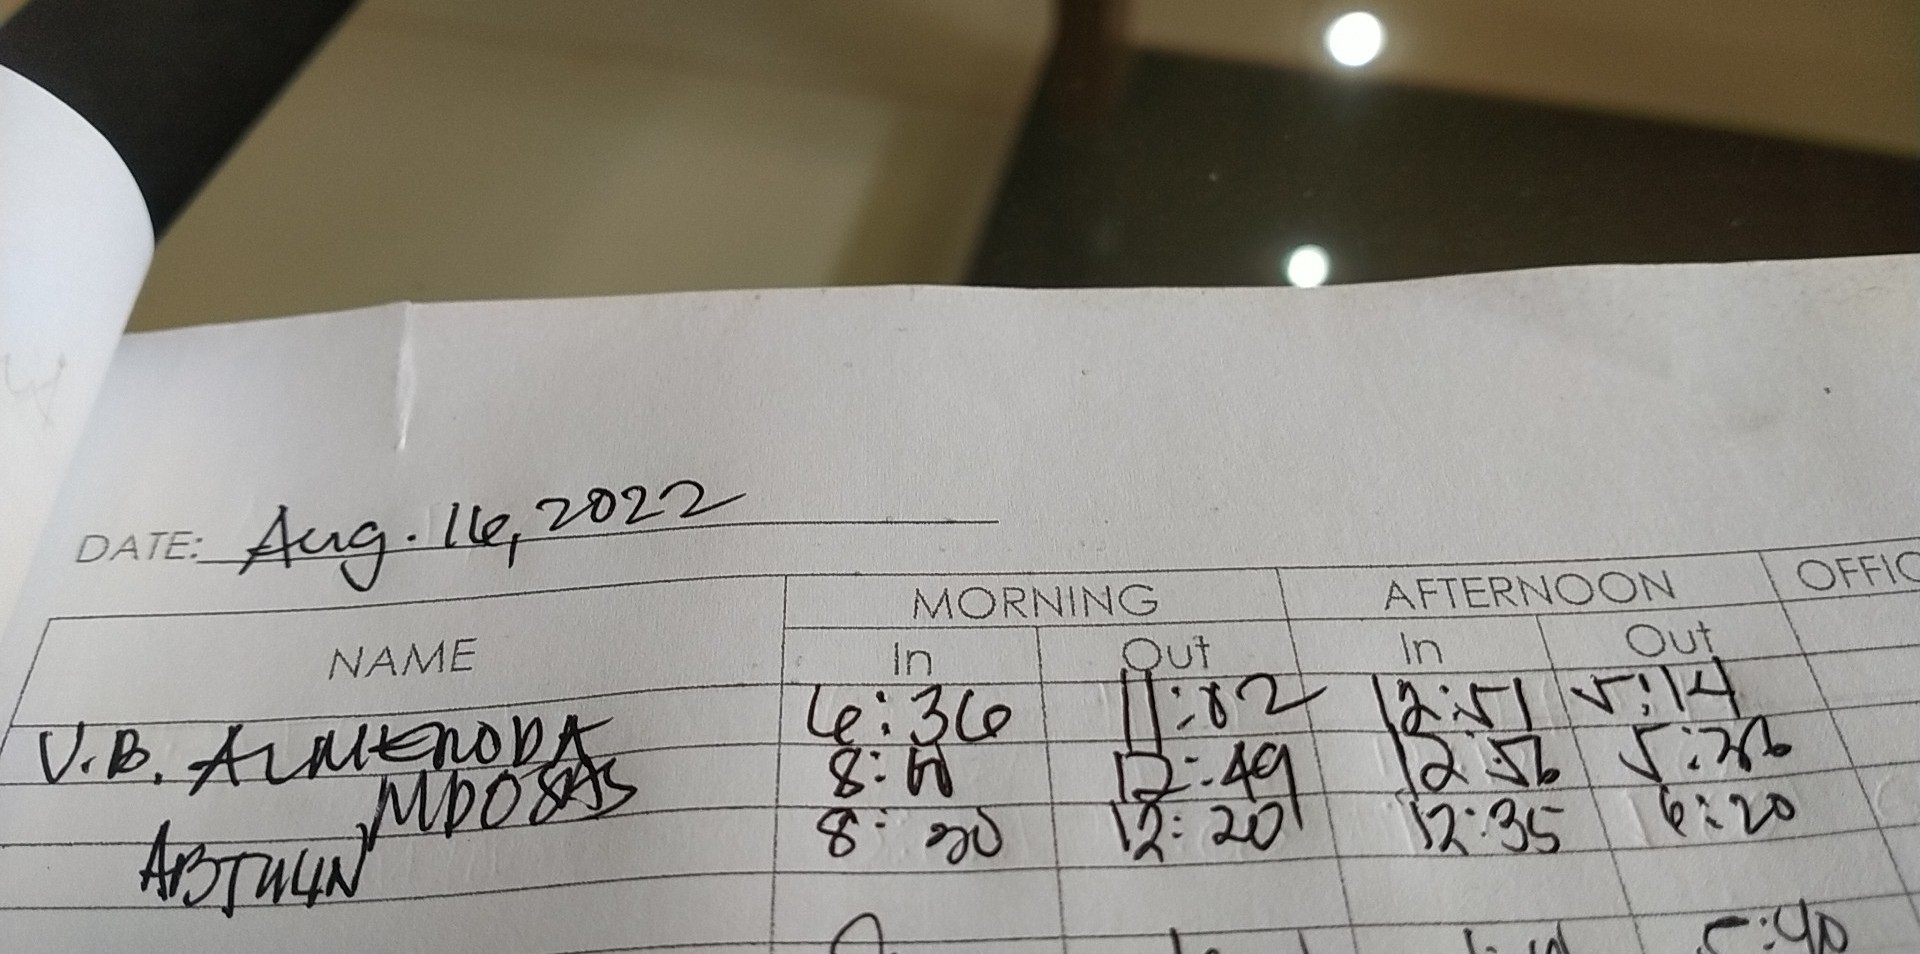 DATE: Aug. 16, 2022
NAME MORNING AFTERNOON OFFIC
In Out In Out
V.B. ALMENODA 6:36 11:02 12:51 5:14
MDOSAS 12:49 12:56
8:20 12:20 12:35 6:20
5:40